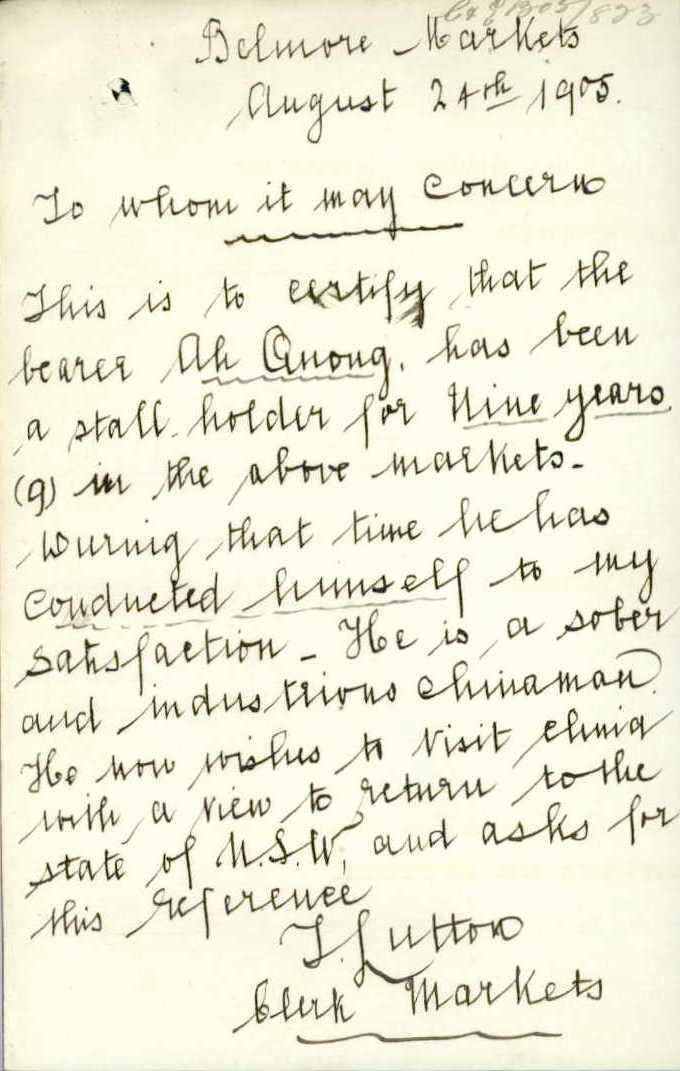 Belmore Markets
August 24th 1905.
To whom it may concern
This is to certify that the
bearer Ah Quong, has been
a stall holder for Nine years
(9) in the above markets.
During that time he has
conducted himself to my
satisfaction - He is a sober
and industrious chinaman.
He now wishes to visit china
with a view to return to the
state of N.S.W, and asks for
this reference
Clerk Markets